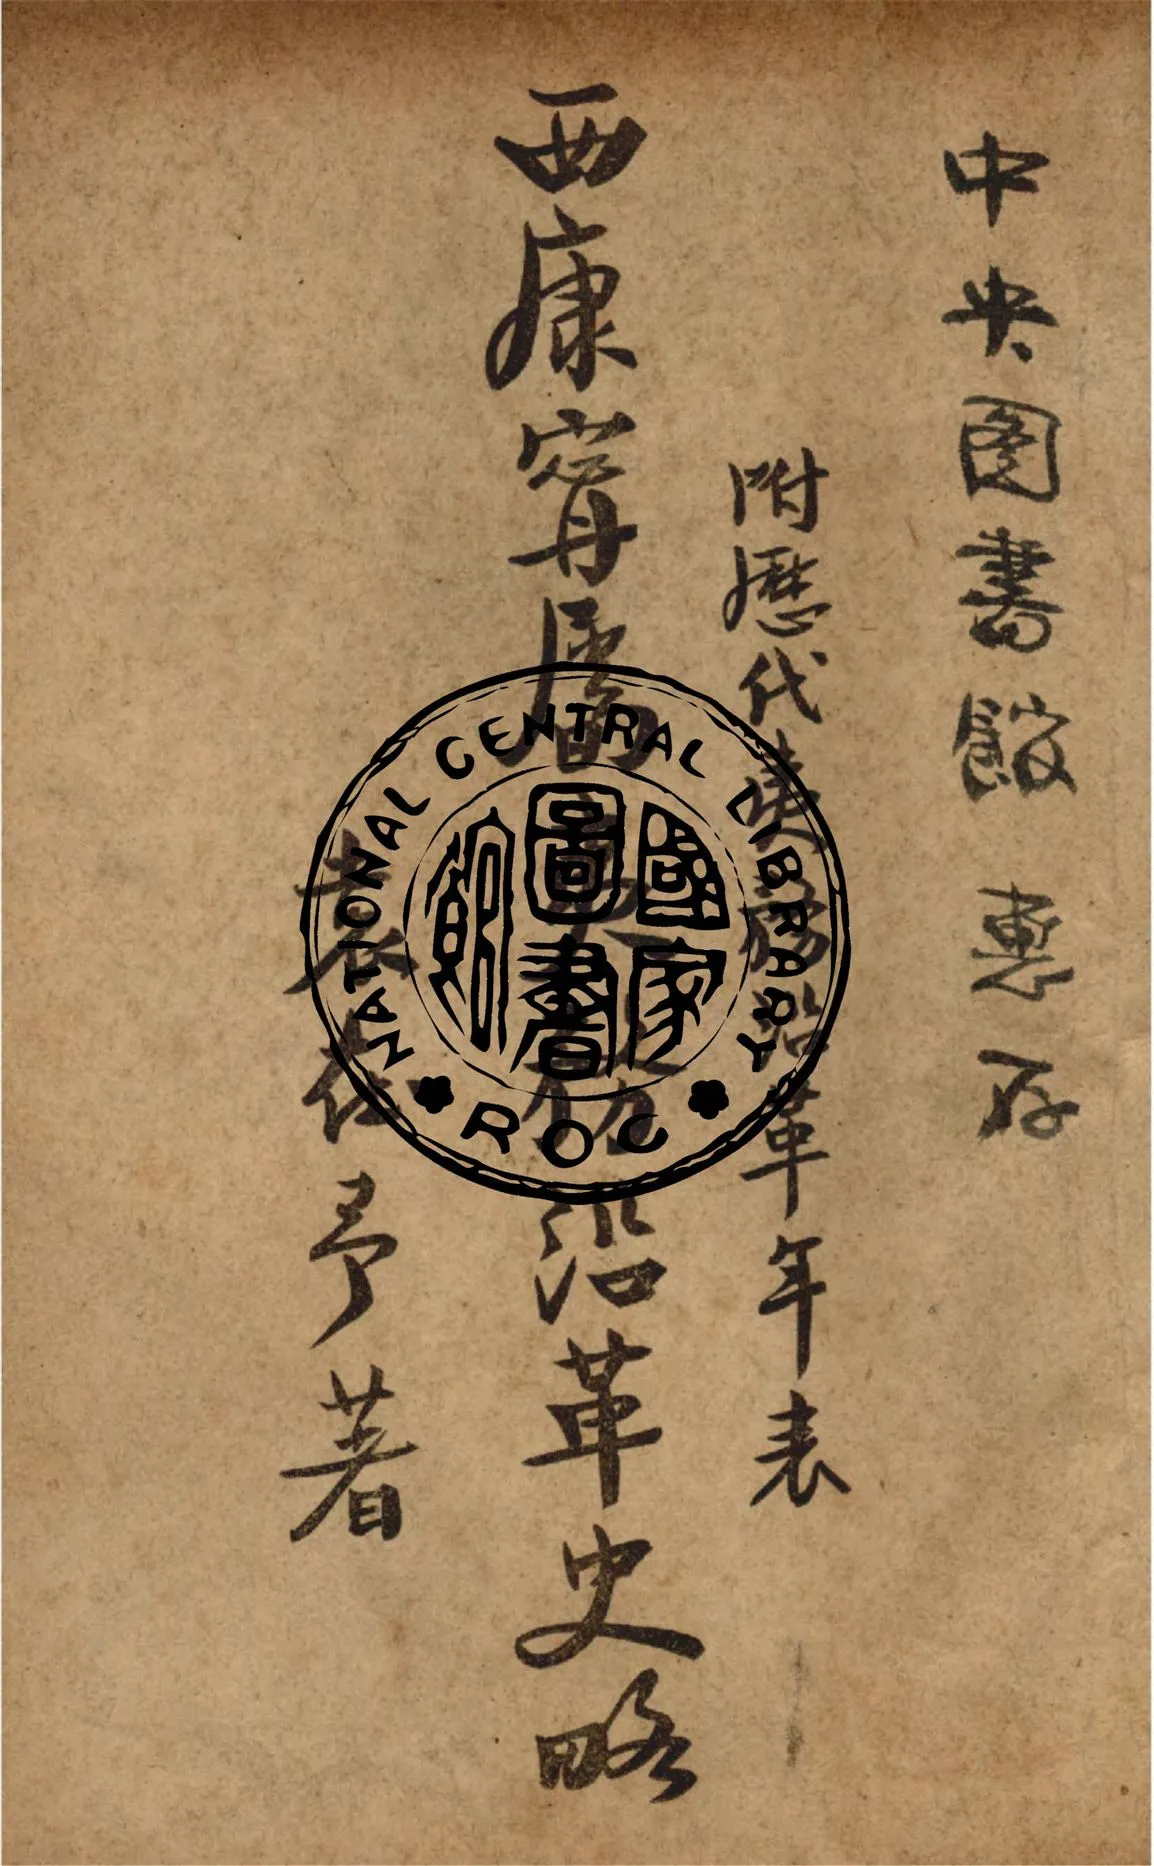 中央图書館 惠存
附歷代沿革年表
西康甯屬沿革史略
著
NATIONAL CENTRAL LIBRARY
國家圖書館
ROC